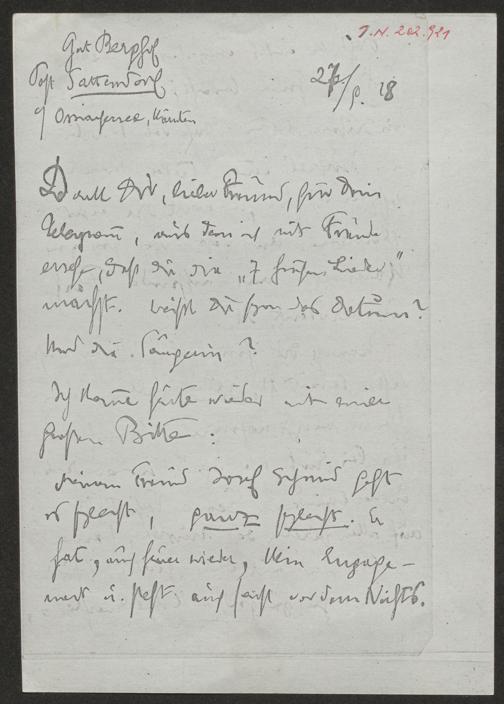 I.N. 202.921
Gut Berghof
Post Sattendorf
a/ Ossiachersee, Kärnten
27/8. 28
Dank Dir, lieber Freund, für Dein
Telegramm, aus dem ich mit Freude
ersehe, daß du die „7 frühen Lieder"
machst. Weißt Du schon das Datum?
Und die Sängerin?
Ich komme heute wieder mit einer
großen Bitte:
Meinem Freund Josef Schmid geht
es schlecht, ganz schlecht. Er
hat, auch heuer wieder, kein Engage-
ment u. steht auch jetzt vor dem Nichts.